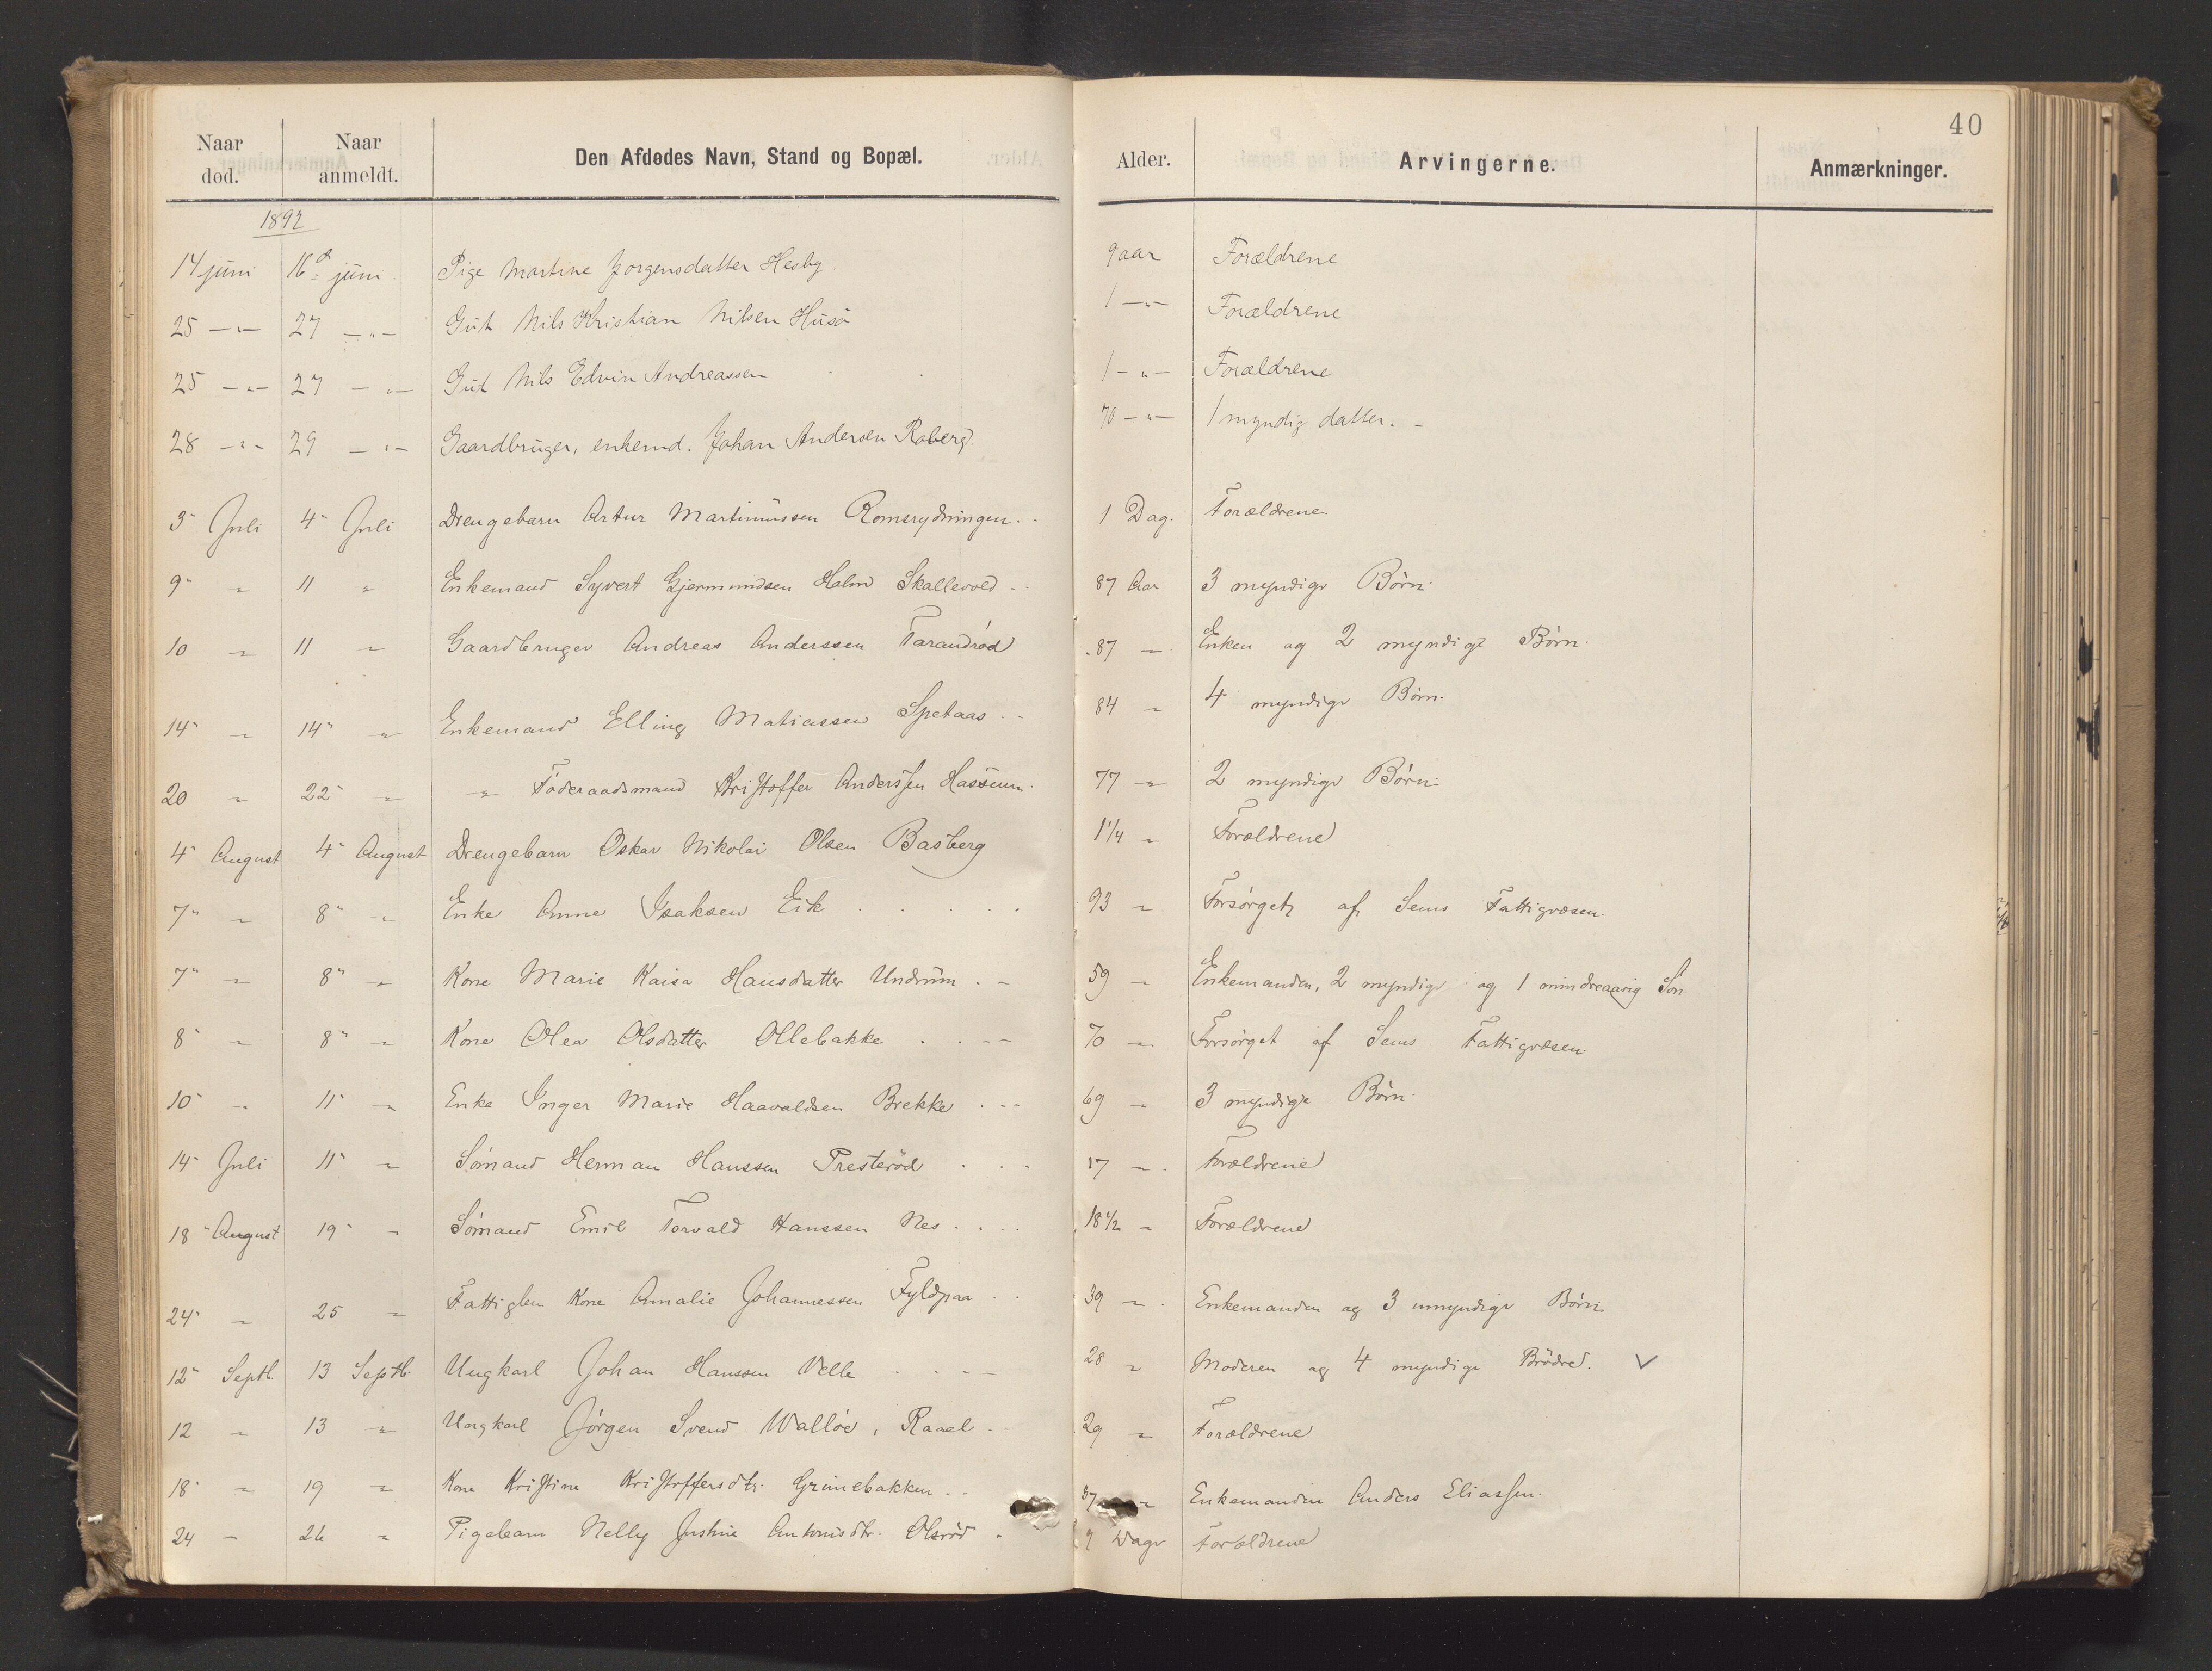 40
Naar død. Naar anmeldt. Den Afdødes Navn, Stand og Bopæl. Alder. Arvingerne. Anmærkninger.
1892
14 juni 16d juni Pige Martine Jorgensdatter Hesby. 9 aar Forældrene
25 —"— 27 —"— Gut Nils Kristian Nilsen Husø 1 —"— Forældrene
25 —"— 27 —"— Gut Nils Edvin Andreassen 1 —"— Forældrene
28 —"— 29 —"— Gaardbruger, enkemd. Johan Andersen Roberg. 70 —"— 1 myndig datter. -
3 Juli 4 Juli Drengebarn Artur Martinussen Romsrydningen. 1 Dag. Forældrene
9 " 11 " Enkemand Syvert Gjermundsen Holm Skallevold 87 Aar 3 myndige Børn.
10 " 11 " Gaardbruger Andreas Anderssen Tarandrød 87 " Enken og 2 myndige Børn.
14 " 14 " Enkemand Elling Matiassen Spetaas 84 " 4 myndige Børn.
20 " 22 " " Føderaadsmand Kristoffer Anderssen Hassum. 77 " 2 myndige Børn.
4 August 4 August Drengebarn Oskar Nikolai Olsen Basberg 1 1/4 " Forældrene
7 " 8 " Enke Anne Isaksen Eik 93 " Forsørget af Sems Fattigvæsen.
7 " 8 " Kone Marie Kaisa Hansdatter Undrum 59 " Enkemanden, 2 myndige og 1 mindreaarig Søn
8 " 8 " Kone Olea Olsdatter Ollebakke 70 " Forsørget af Sems Fattigvæsen
10 " 11 " Enke Inger Marie Haavaldsen Brekke 69 " 3 myndige Børn.
14 Juli 11 " Sømand Herman Hanssen Presterød 17 " Forældrene
18 August 19 " Sømand Emil Torvald Hanssen Nes 18 1/2 " Forældrene
24 " 25 " Fattiglem Kone Amalie Johannessen Fyldpaa 39 " Enkemanden og 3 umyndige Børn
12 Septb. 13 Septb. Ungkarl Johan Hanssen Velle 28 " Moderen og 4 myndige Brødre. ✓
12 " 13 " Ungkarl Jørgen Svend Walløe, Raael 29 " Forældrene
18 " 19 " Kone Kristine Kristoffersdtr. Grimebakken 37 " Enkemanden Anders Eliassen.
24 " 26 " Pigebarn Nelly Justine Antonisdtr. Olsrød 9 Dage Forældrene